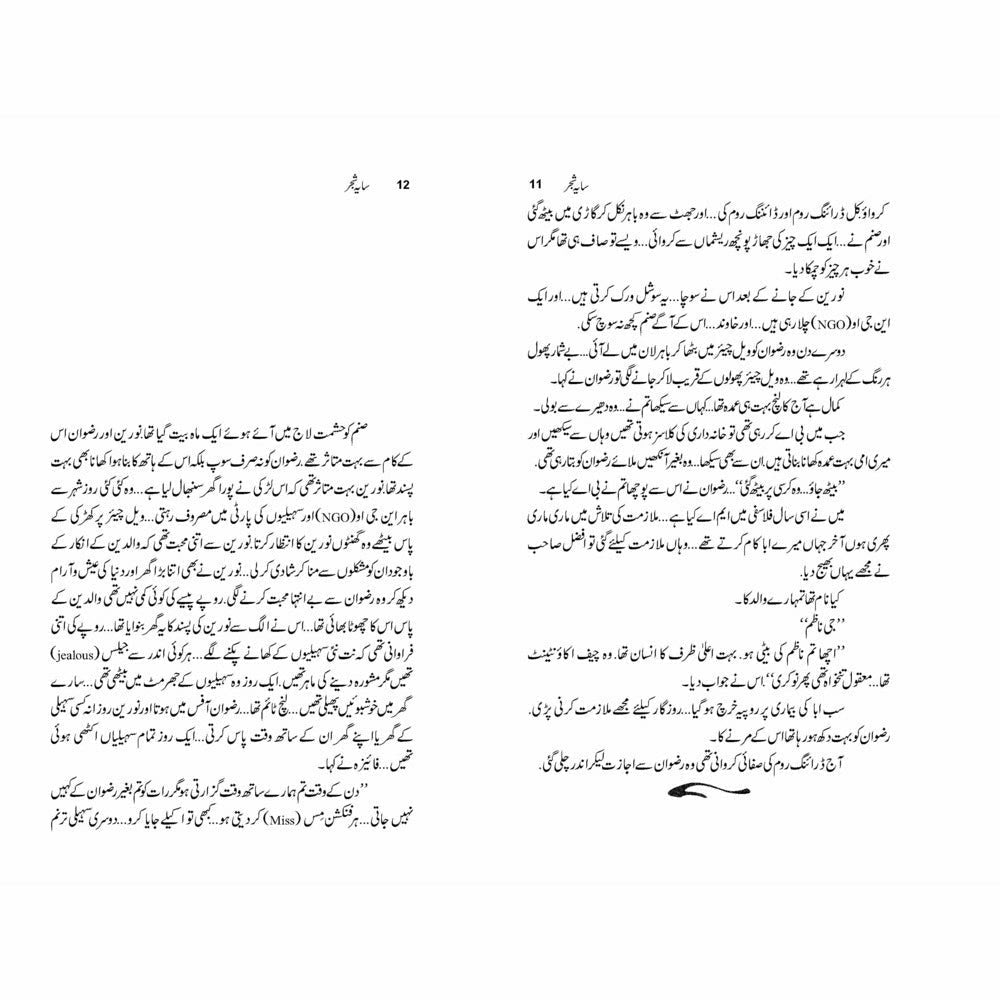 سایہ شجر 11
کرواؤ کل ڈرائنگ روم اور ڈائننگ روم کی...اور جھٹ سے وہ باہر نکل کر گاڑی میں بیٹھ گئی
اور صنم نے...ایک ایک چیز کی جھاڑ پونچھ ریشماں سے کروائی...ویسے تو صاف ہی تھا مگر اس
نے خوب ہر چیز کو چمکا دیا۔
نورین کے جانے کے بعد اس نے سوچا...یہ سوشل ورک کرتی ہیں...اور ایک
این جی او (NGO) چلا رہی ہیں...اور خاوند...اس کے آگے صنم کچھ نہ سوچ سکی۔
دوسرے دن وہ رضوان کو ویل چیئر میں بٹھا کر باہر لان میں لے آئی...بے شمار پھول
ہر رنگ کے لہرا رہے تھے...وہ ویل چیئر پھولوں کے قریب لا کر جانے لگی تو رضوان نے کہا۔
کمال ہے آج کا لنچ بہت ہی عمدہ تھا...کہاں سے سیکھا تم نے...وہ دھیرے سے بولی۔
جب میں بی اے کر رہی تھی تو خانہ داری کی کلاسز ہوتی تھیں وہاں سے سیکھیں اور
میری امی بہت عمدہ کھانا بناتی ہیں۔ان سے بھی سیکھا...وہ بغیر آنکھیں ملائے رضوان کو بتا رہی تھی۔
”بیٹھ جاؤ...وہ کرسی پر بیٹھ گئی“...رضوان نے اس سے پوچھا تم نے بی اے کیا ہے۔
میں نے اسی سال فلاسفی میں ایم اے کیا ہے...ملازمت کی تلاش میں ماری ماری
پھری ہوں آخر جہاں میرے ابا کام کرتے تھے...وہاں ملازمت کیلئے گئی تو افضل صاحب
نے مجھے یہاں بھیج دیا۔
کیا نام تھا تمہارے والد کا۔
”جی ناظم“
”اچھا تم ناظم کی بیٹی ہو۔ بہت اعلیٰ ظرف کا انسان تھا۔ وہ چیف اکاؤنٹینٹ
تھا...معقول تنخواہ تھی پھر نوکری“۔اس نے جواب دیا۔
سب ابا کی بیماری پر روپیہ خرچ ہو گیا...روزگار کیلئے مجھے ملازمت کرنی پڑی۔
رضوان کو بہت دکھ ہو رہا تھا اس کے مرنے کا۔
آج ڈرائنگ روم کی صفائی کروانی تھی وہ رضوان سے اجازت لیکر اندر چلی گئی۔
سایہ شجر 12
صنم کو حشمت لاج میں آئے ہوئے ایک ماہ بیت گیا تھا۔نورین اور رضوان اس
کے کام سے بہت متاثر تھے۔رضوان کو نہ صرف سوپ بلکہ اس کے ہاتھ کا بنا ہوا کھانا بھی بہت
پسند تھا۔نورین بہت متاثر تھی کہ اس لڑکی نے پورا گھر سنبھال لیا ہے...وہ کئی کئی روز شہر سے
باہر این جی او (NGO) اور سہیلیوں کی پارٹی میں مصروف رہتی...ویل چیئر پر کھڑکی کے
پاس بیٹھے وہ گھنٹوں نورین کا انتظار کرتا۔نورین سے اتنی محبت تھی کہ والدین کے انکار کے
باوجود ان کو مشکلوں سے منا کر شادی کر لی...نورین نے بھی اتنا بڑا گھر اور دنیا کی عیش و آرام
دیکھ کر وہ رضوان سے بے انتہا محبت کرنے لگی۔روپے پیسے کی کوئی کمی نہیں تھی والدین کے
پاس اس کا چھوٹا بھائی تھا...اس نے الگ سے نورین کی پسند کا یہ گھر بنوایا تھا...روپے کی اتنی
فراوانی تھی کہ نت نئی سہیلیوں کے کھانے پکنے لگے...ہر کوئی اندر سے جیلس (jealous)
تھیں مگر مشورہ دینے کی ماہر تھیں۔ایک روز وہ سہیلیوں کے جھرمٹ میں بیٹھی تھی...سارے
گھر میں خوشبوئیں پھیلی تھیں...لنچ ٹائم تھا...رضوان آفس میں ہوتا اور نورین روزانہ کسی سہیلی
کے گھر یا اپنے گھر ان کے ساتھ وقت پاس کرتی...ایک روز تمام سہیلیاں اکٹھی ہوئی
تھیں...فائیزہ نے کہا۔
”دن کے وقت تم ہمارے ساتھ وقت گزارتی ہو مگر رات کو تم بغیر رضوان کے کہیں
نہیں جاتی...ہر فنکشن مِس (Miss) کر دیتی ہو...کبھی تو اکیلے جایا کرو...دوسری سہیلی ترنم